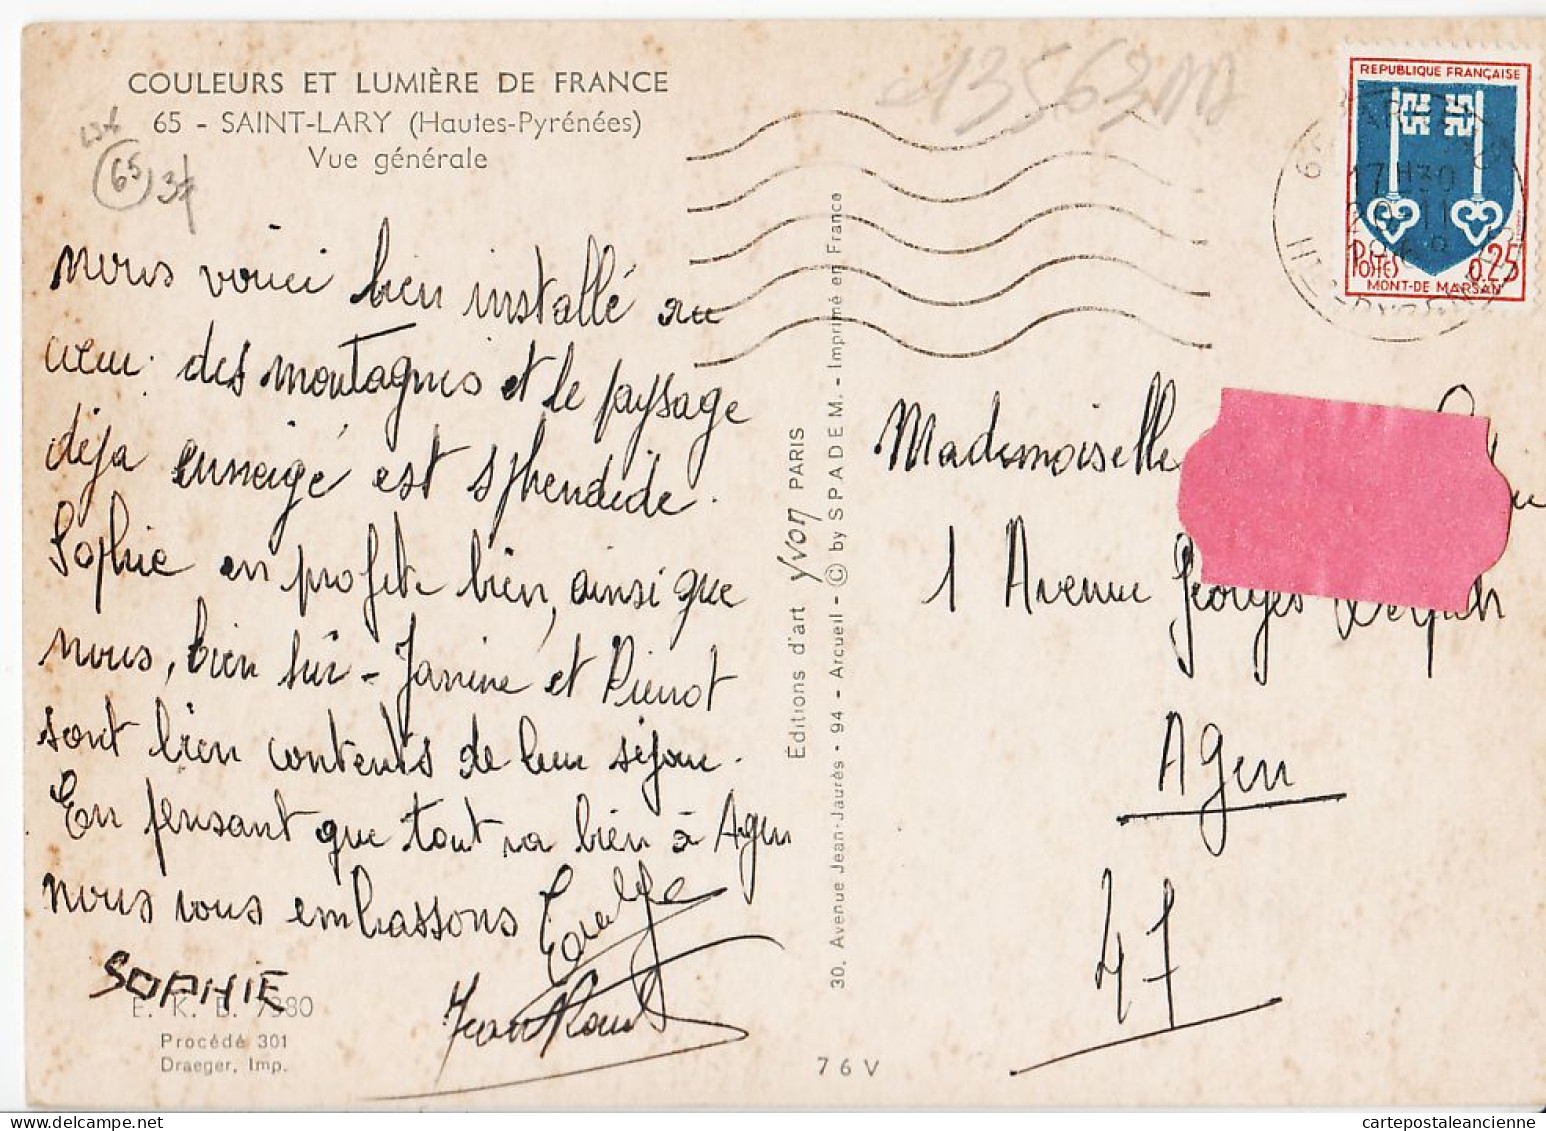 COULEURS ET LUMIÈRE DE FRANCE
65 - SAINT-LARY (Hautes-Pyrénées)
Vue générale
65
13563
nous voici bien installé au
cœur des montagnes et le paysage
déja enneigé est splendide.
Sophie en profite bien, ainsi que
nous, bien sûr - Janine et Pierrot
sont bien contents de leur séjour.
En pensant que tout va bien à Agen
nous vous embrassons
SOPHIE
E. K. B. 7380
Procédé 301
Draeger, Imp.
Éditions d'art Yvon PARIS
30, Avenue Jean-Jaurès - 94 - Arcueil - © by SPADEM. - Imprimé en France
76 V
REPUBLIQUE FRANÇAISE
POSTES 0,25
MONT-DE MARSAN
17H30
Mademoiselle
1 Avenue Georges
Agen
47
cartepostaleancienne.com